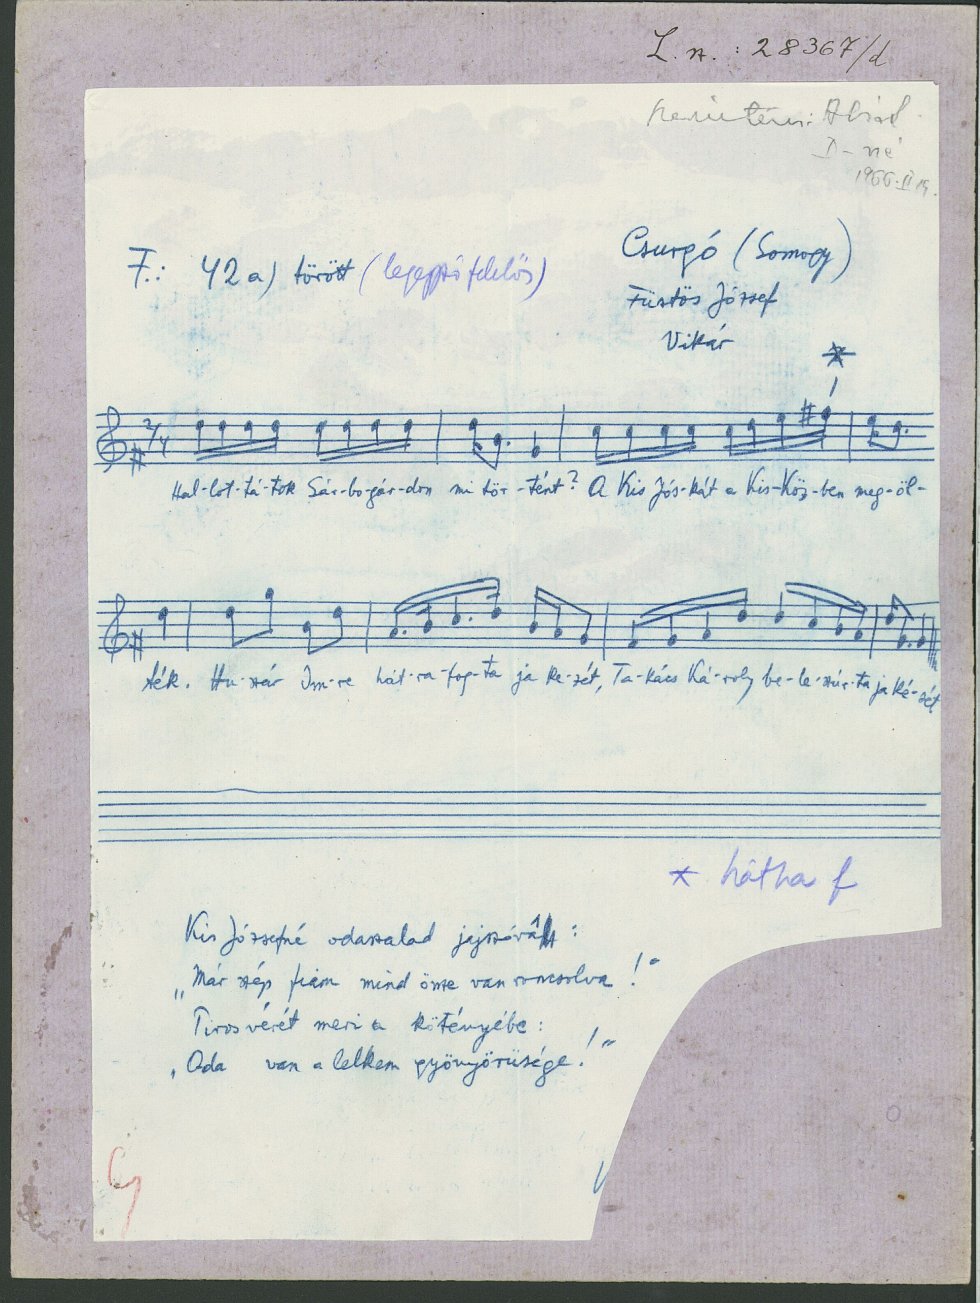 L. n.: 28367/d
D-né
1966. II. 19.
Csurgó (Somogy)
F.: 42 a) törött
Füstös József
Vikár
*
2/4
Hal-lot-tá-tok Sár-bo-gár-don mi tör-tént? A Kis Jós-kát a Kis-Köz-ben meg-öl-
ték. Hu-szár Im-re hát-ra-fog-ta ja ke-zét, Ta-kács Ká-roly be-le-szúr-ta ja ké-sét
* hátha f
Kis Józsefné odaszalad jajszóval:
„Már szép fiam mind össze van roncsolva!"
Piros vérét meri a kötényébe:
„Oda van a lelkem gyönyörüsége!"